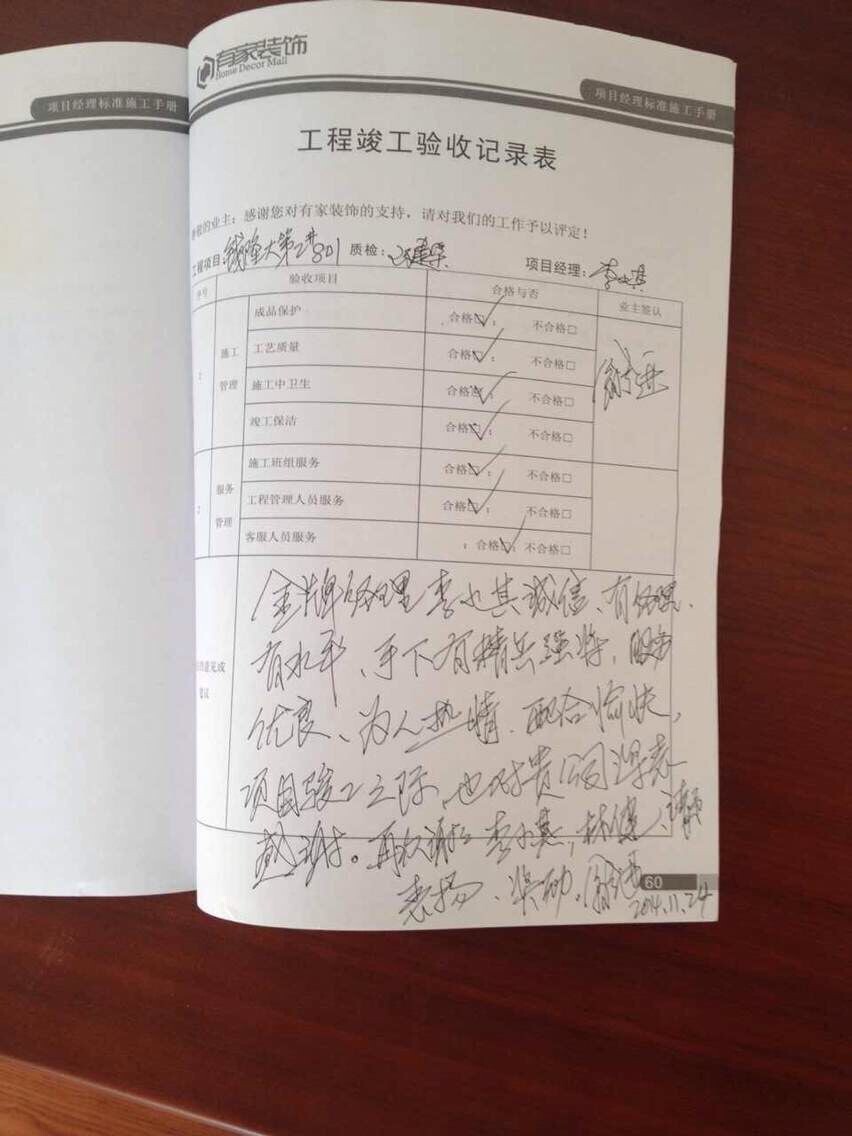 项目经理标准施工手册
有家装饰
Home Decor Mall
项目经理标准施工手册
工程竣工验收记录表
的业主：感谢您对有家装饰的支持，请对我们的工作予以评定！
工程项目：钱隆大第 801 质检： 项目经理：李小其
序号 验收项目 合格与否 业主签认
1 施工管理 成品保护 合格□； 不合格□
工艺质量 合格□； 不合格□
施工中卫生 合格□； 不合格□
竣工保洁 合格□； 不合格□
2 服务管理 施工班组服务 合格□； 不合格□
工程管理人员服务 合格□； 不合格□
客服人员服务 ；合格□；不合格□
意见或
建议
金牌经理李小其诚信、有经理、
有水平、手下有精兵强将，服务
优良、为人热情，配合愉快，
项目竣工之际，也对贵公司深表
感谢。再次谢谢李小其，林健、请予
表扬、奖励。
2014.11.24
60